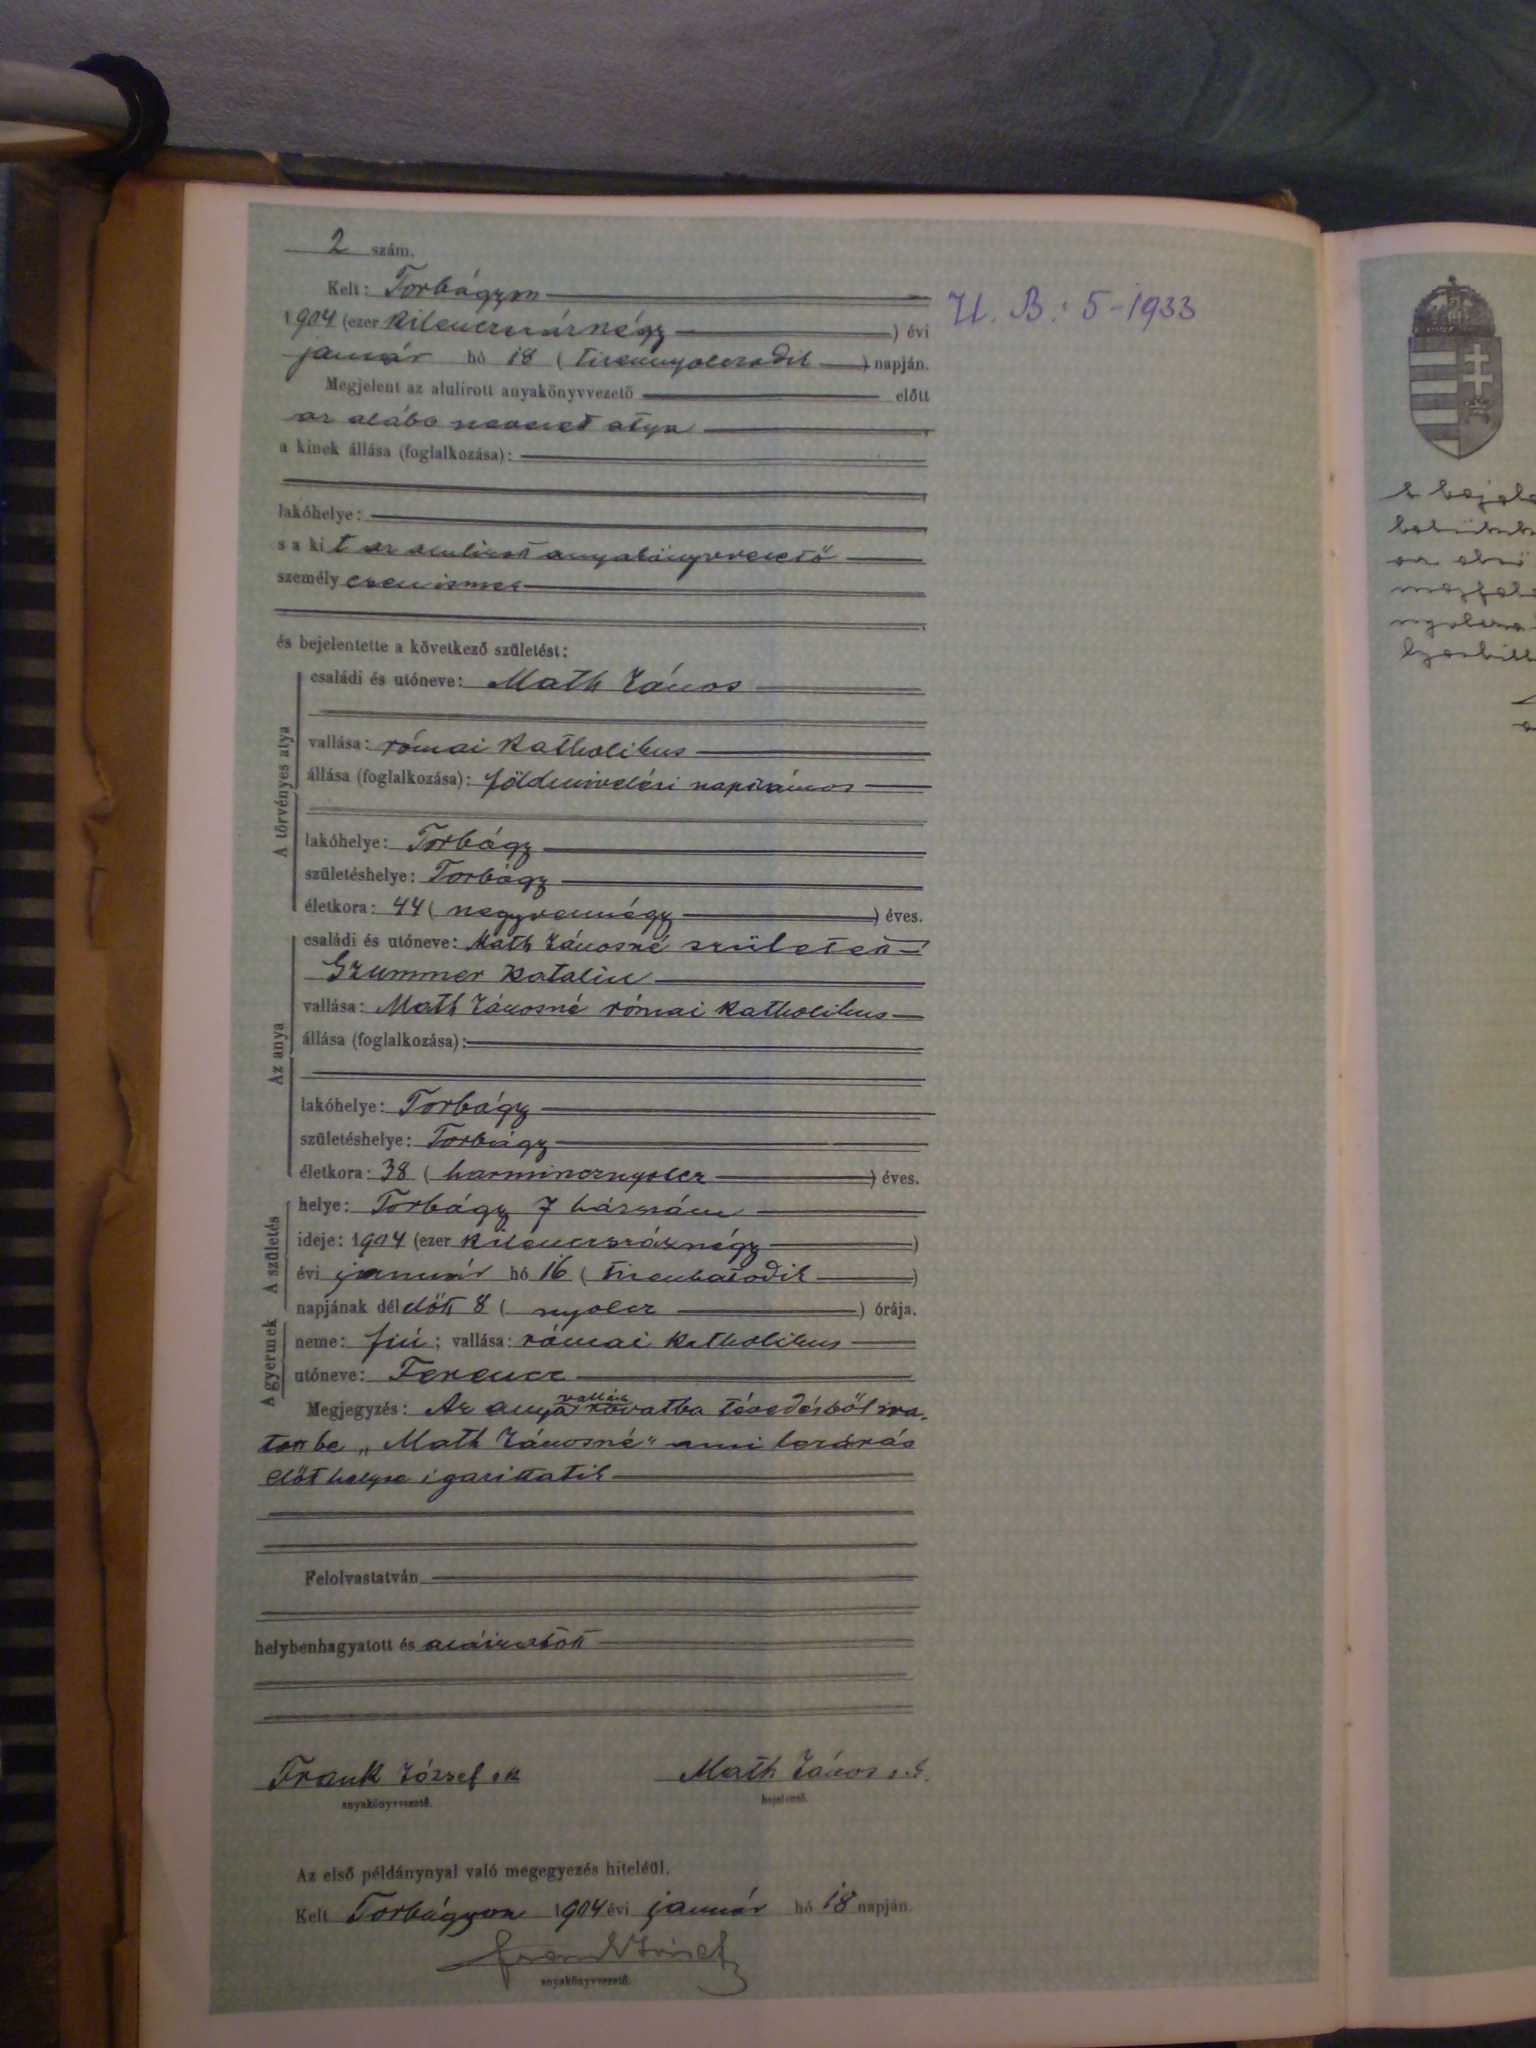 2 szám.
Kelt: Torbágyon
U. B.: 5-1933
1904 (ezer kilencszáznégy) évi
január hó 18 (tizennyolcadik) napján.
Megjelent az alulírott anyakönyvvezető előtt
az alább nevezet atya
a kinek állása (foglalkozása):
lakóhelye:
s a kit az alulirott anyakönyvvezető
személyesen ismer
és bejelentette a következő születést:
A törvényes atya
családi és utóneve: Math János
vallása: római katholikus
állása (foglalkozása): földmivelési napszámos
lakóhelye: Torbágy
születéshelye: Torbágy
életkora: 44 (negyvennégy) éves.
Az anya
családi és utóneve: Math Jánosné születet
Grummer Katalin
vallása: Math Jánosné római katholikus
állása (foglalkozása):
lakóhelye: Torbágy
születéshelye: Torbágy
életkora: 38 (harmincznyolcz) éves.
A születés
helye: Torbágy 7 házszám
ideje: 1904 (ezer kilencszáznégy)
évi január hó 16 (tizenhatodik)
napjának délelőtt 8 (nyolcz) órája.
A gyermek
neme: fiú; vallása: római katholikus
utóneve: Ferencz
Megjegyzés: Az anya vallás rovatba tévedésből ira-
tott be „Math Jánosné" ami lezárás
előt helyre igazittatik
Felolvastatván
helybenhagyatott és aláiratott
Frank József sk
anyakönyvvezető.
Math János s.k.
bejelentő.
Az első példánynyal való megegyezés hiteléül.
Kelt Torbágyon 1904 évi január hó 18 napján
Frank József
anyakönyvvezető.